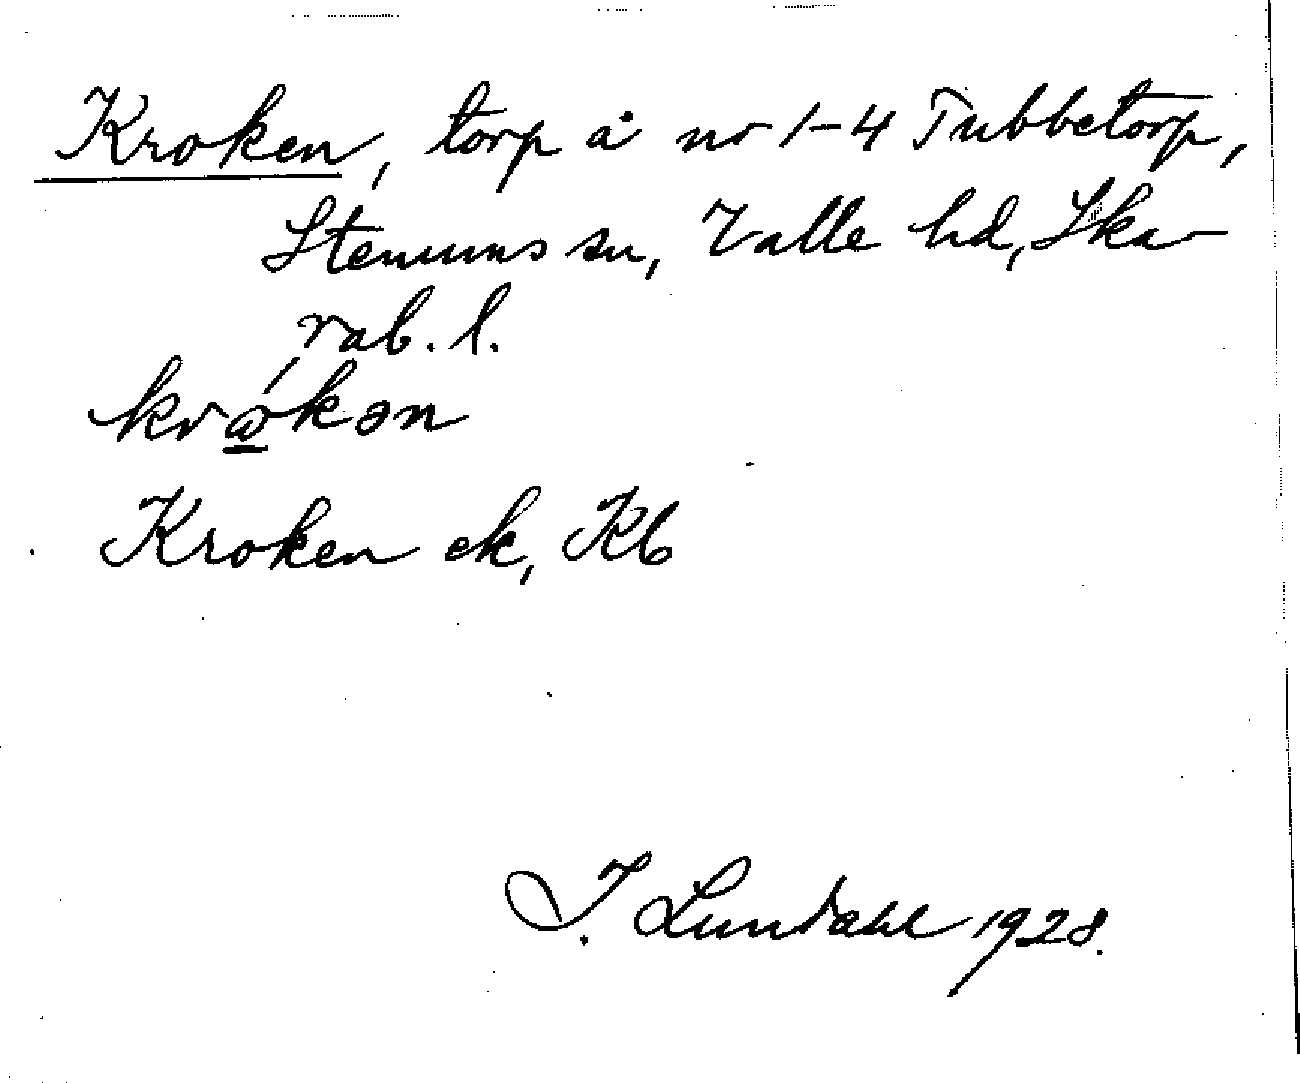 Kroken, torp å nr 1-4 Tubbetorp,
Stenums sn, Valle hd, Ska-
rab. l.
krώ̲kən
Kroken ek, Kb
I. Lundahl 1928.